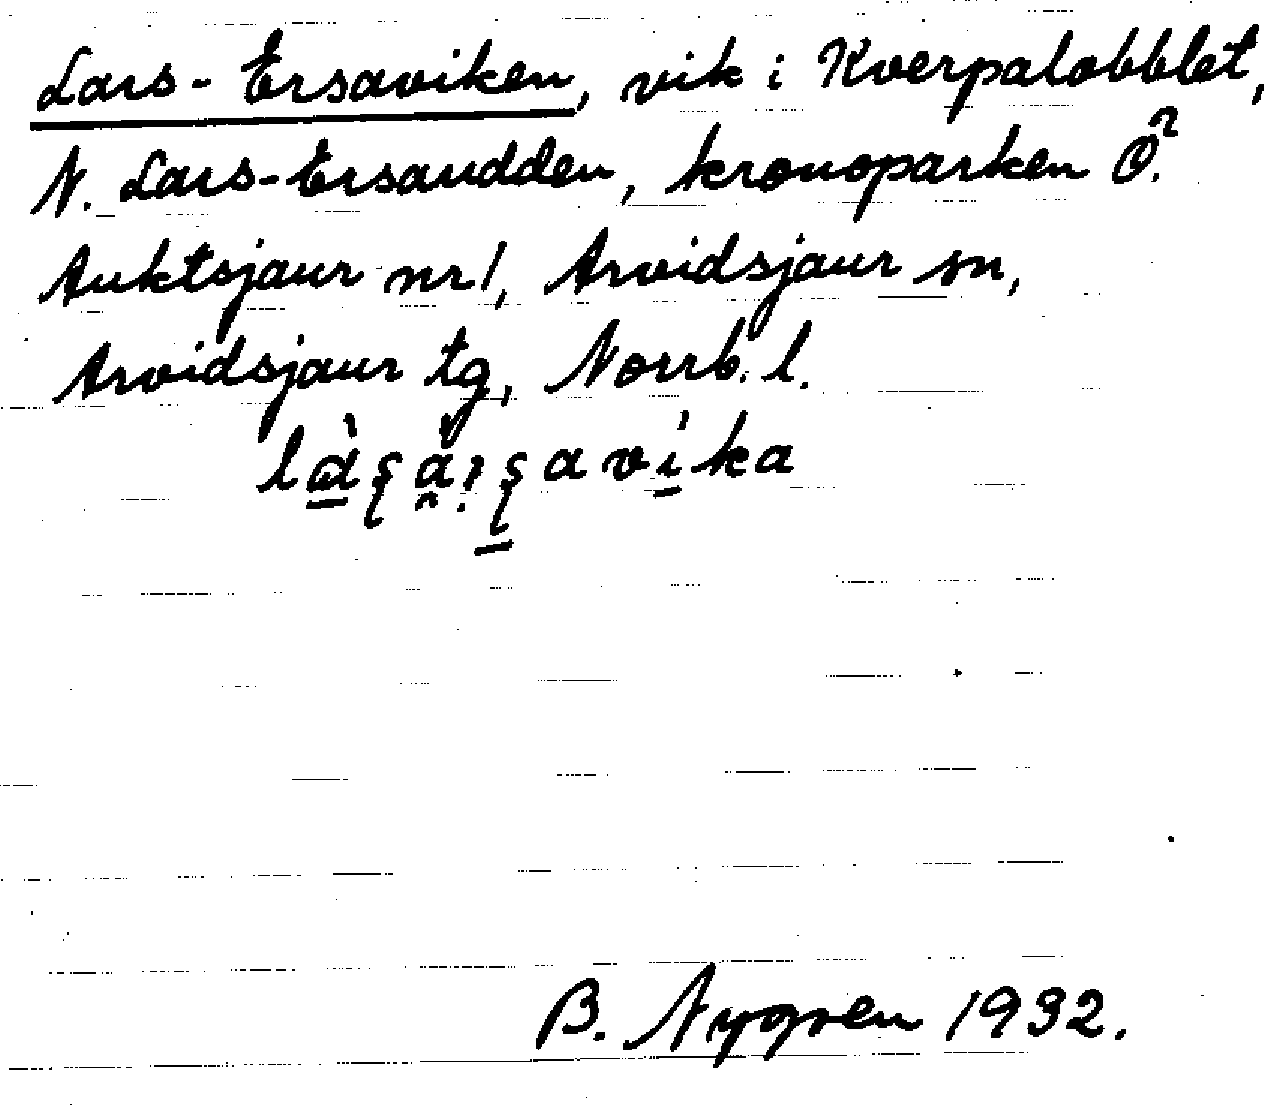 Lars-Ersaviken, vik i Kverpalobblet,
N. Lars-Ersaudden, kronoparken Ö.
Auktsjaur nr 1, Arvidsjaur sn,
Arvidsjaur tg, Norrb. l.
B. Nygren 1932.